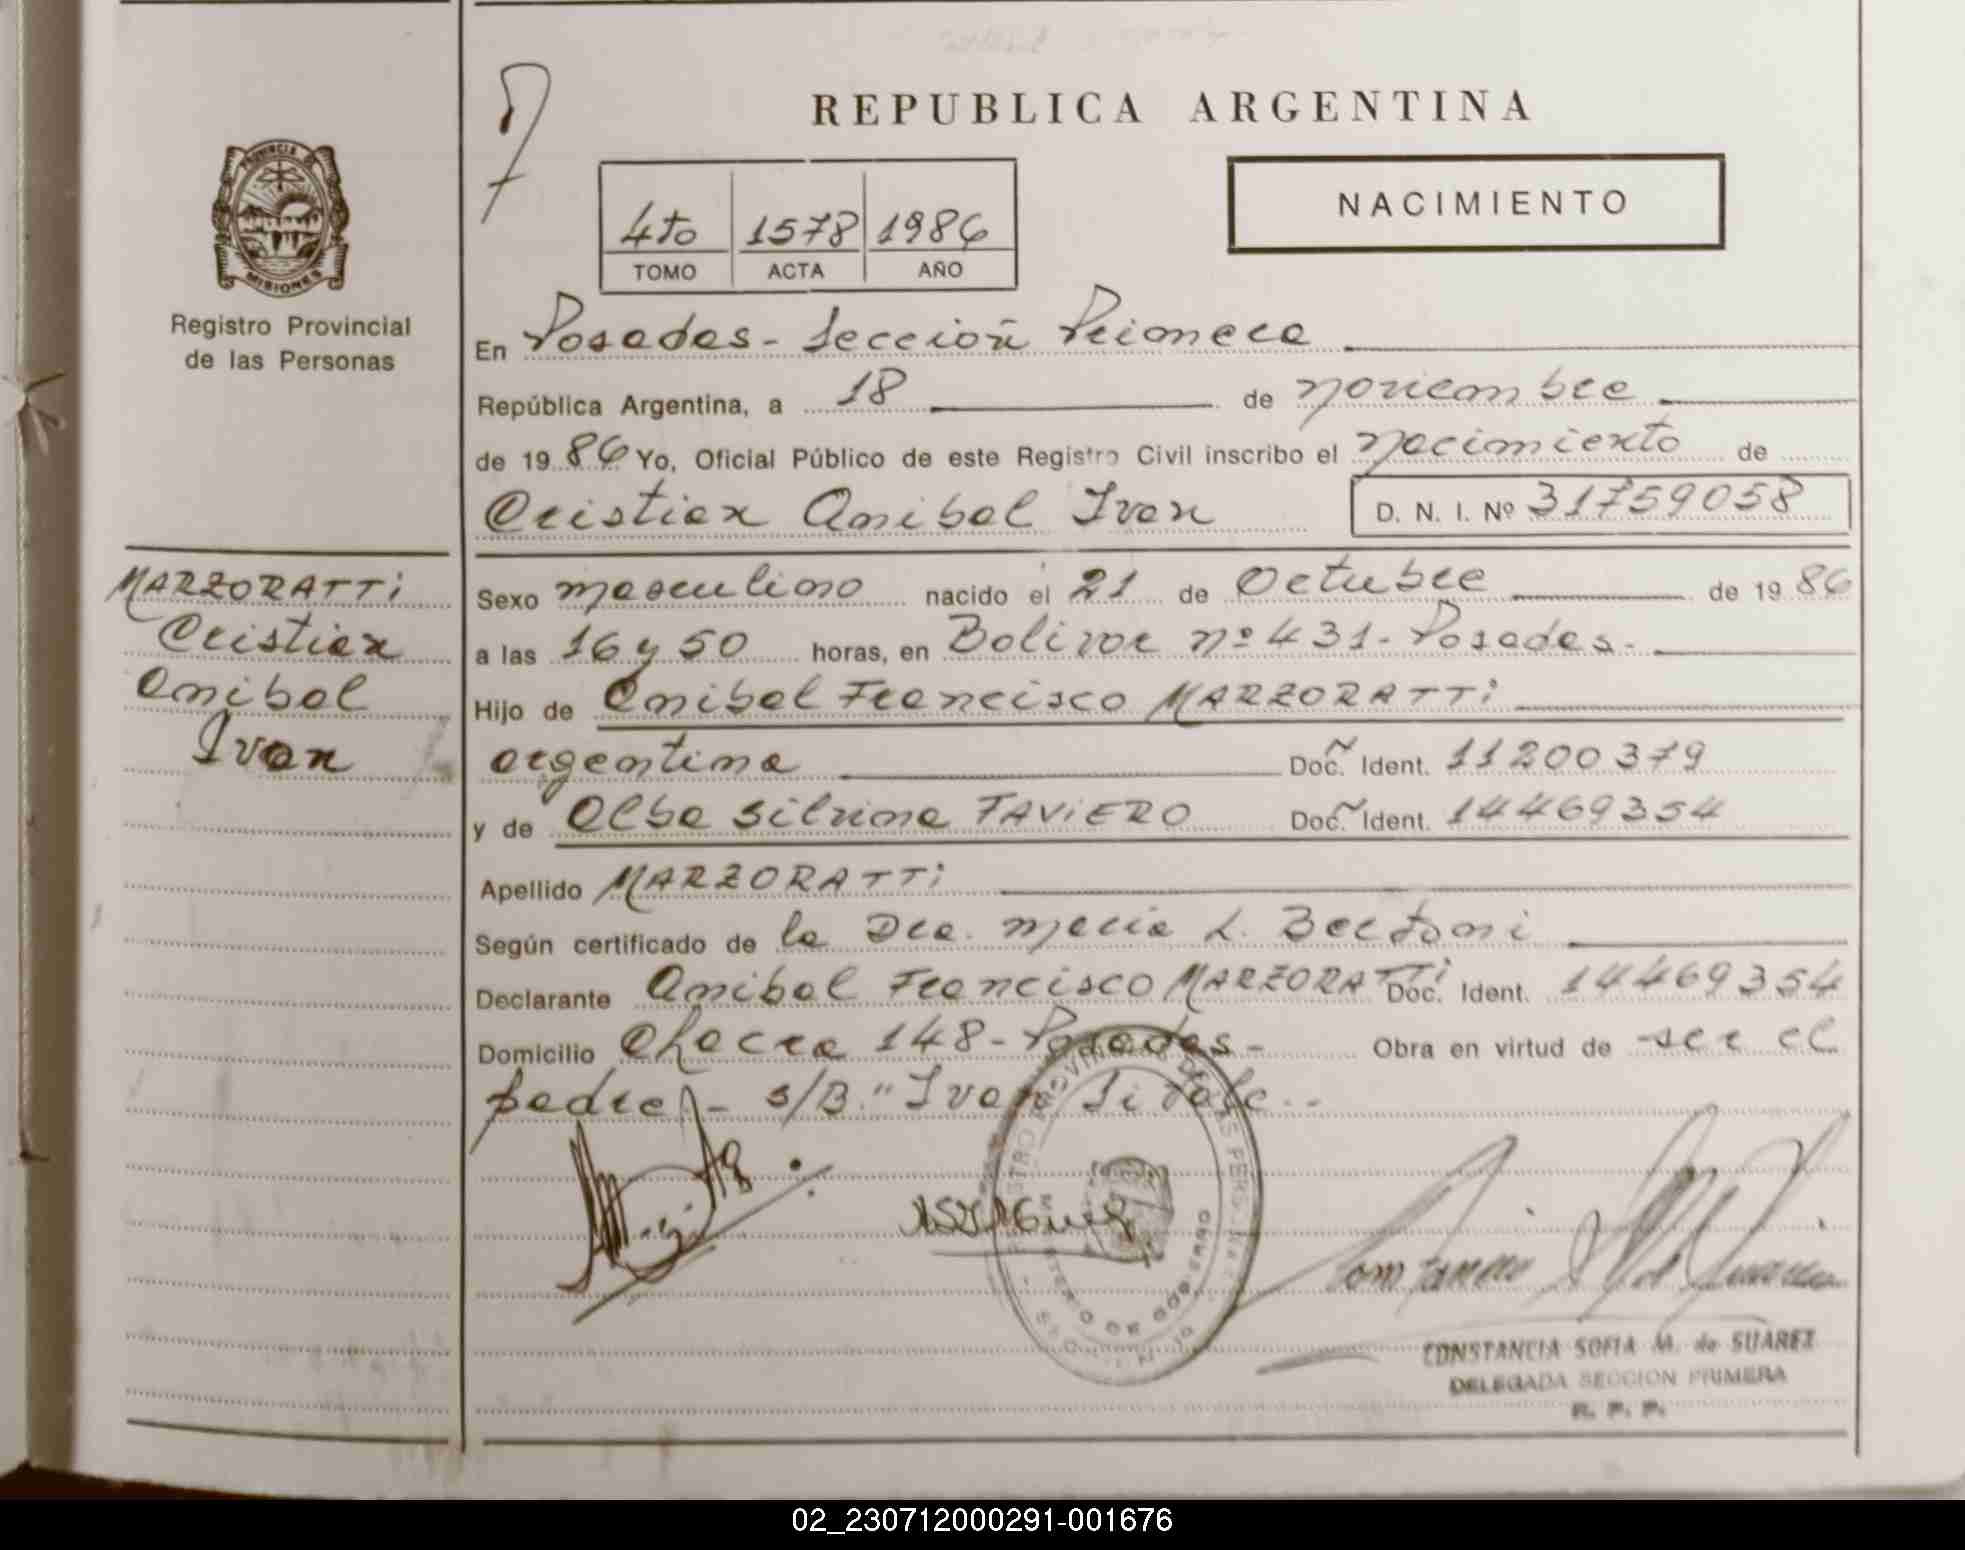 REPUBLICA ARGENTINA
PROVINCIA DE
MISIONES
Registro Provincial
de las Personas
4to 1578 1986
TOMO ACTA AÑO
NACIMIENTO
En Posadas - Sección Primera
República Argentina, a 18 de noviembre
de 1986 Yo, Oficial Público de este Registro Civil inscribo el nacimiento de
Cristian Anibal Ivan D. N. I. Nº 31759058
MARZORATTi
Cristian
Anibal
Ivan
Sexo masculino nacido el 21 de Octubre de 1986
a las 16 y 50 horas, en Bolivar nº 431 - Posadas.-
Hijo de Anibal Francisco MARZORATTi
argentina Doc. Ident. 11200379
y de Alba Silvina TAViERO Doc. Ident. 14469354
Apellido MARZORATTi
Según certificado de la Dra. Maria L. Bertoni
Declarante Anibal Francisco MARZORATTi Doc. Ident. 14469354
Domicilio Chacra 148 - Posadas - Obra en virtud de -ser el
padre.- s/B. "Ivan" Si Vale.-
CONSTANCIA SOFIA M. de SUAREZ
DELEGADA SECCION PRIMERA
R. P. P.
02_230712000291-001676